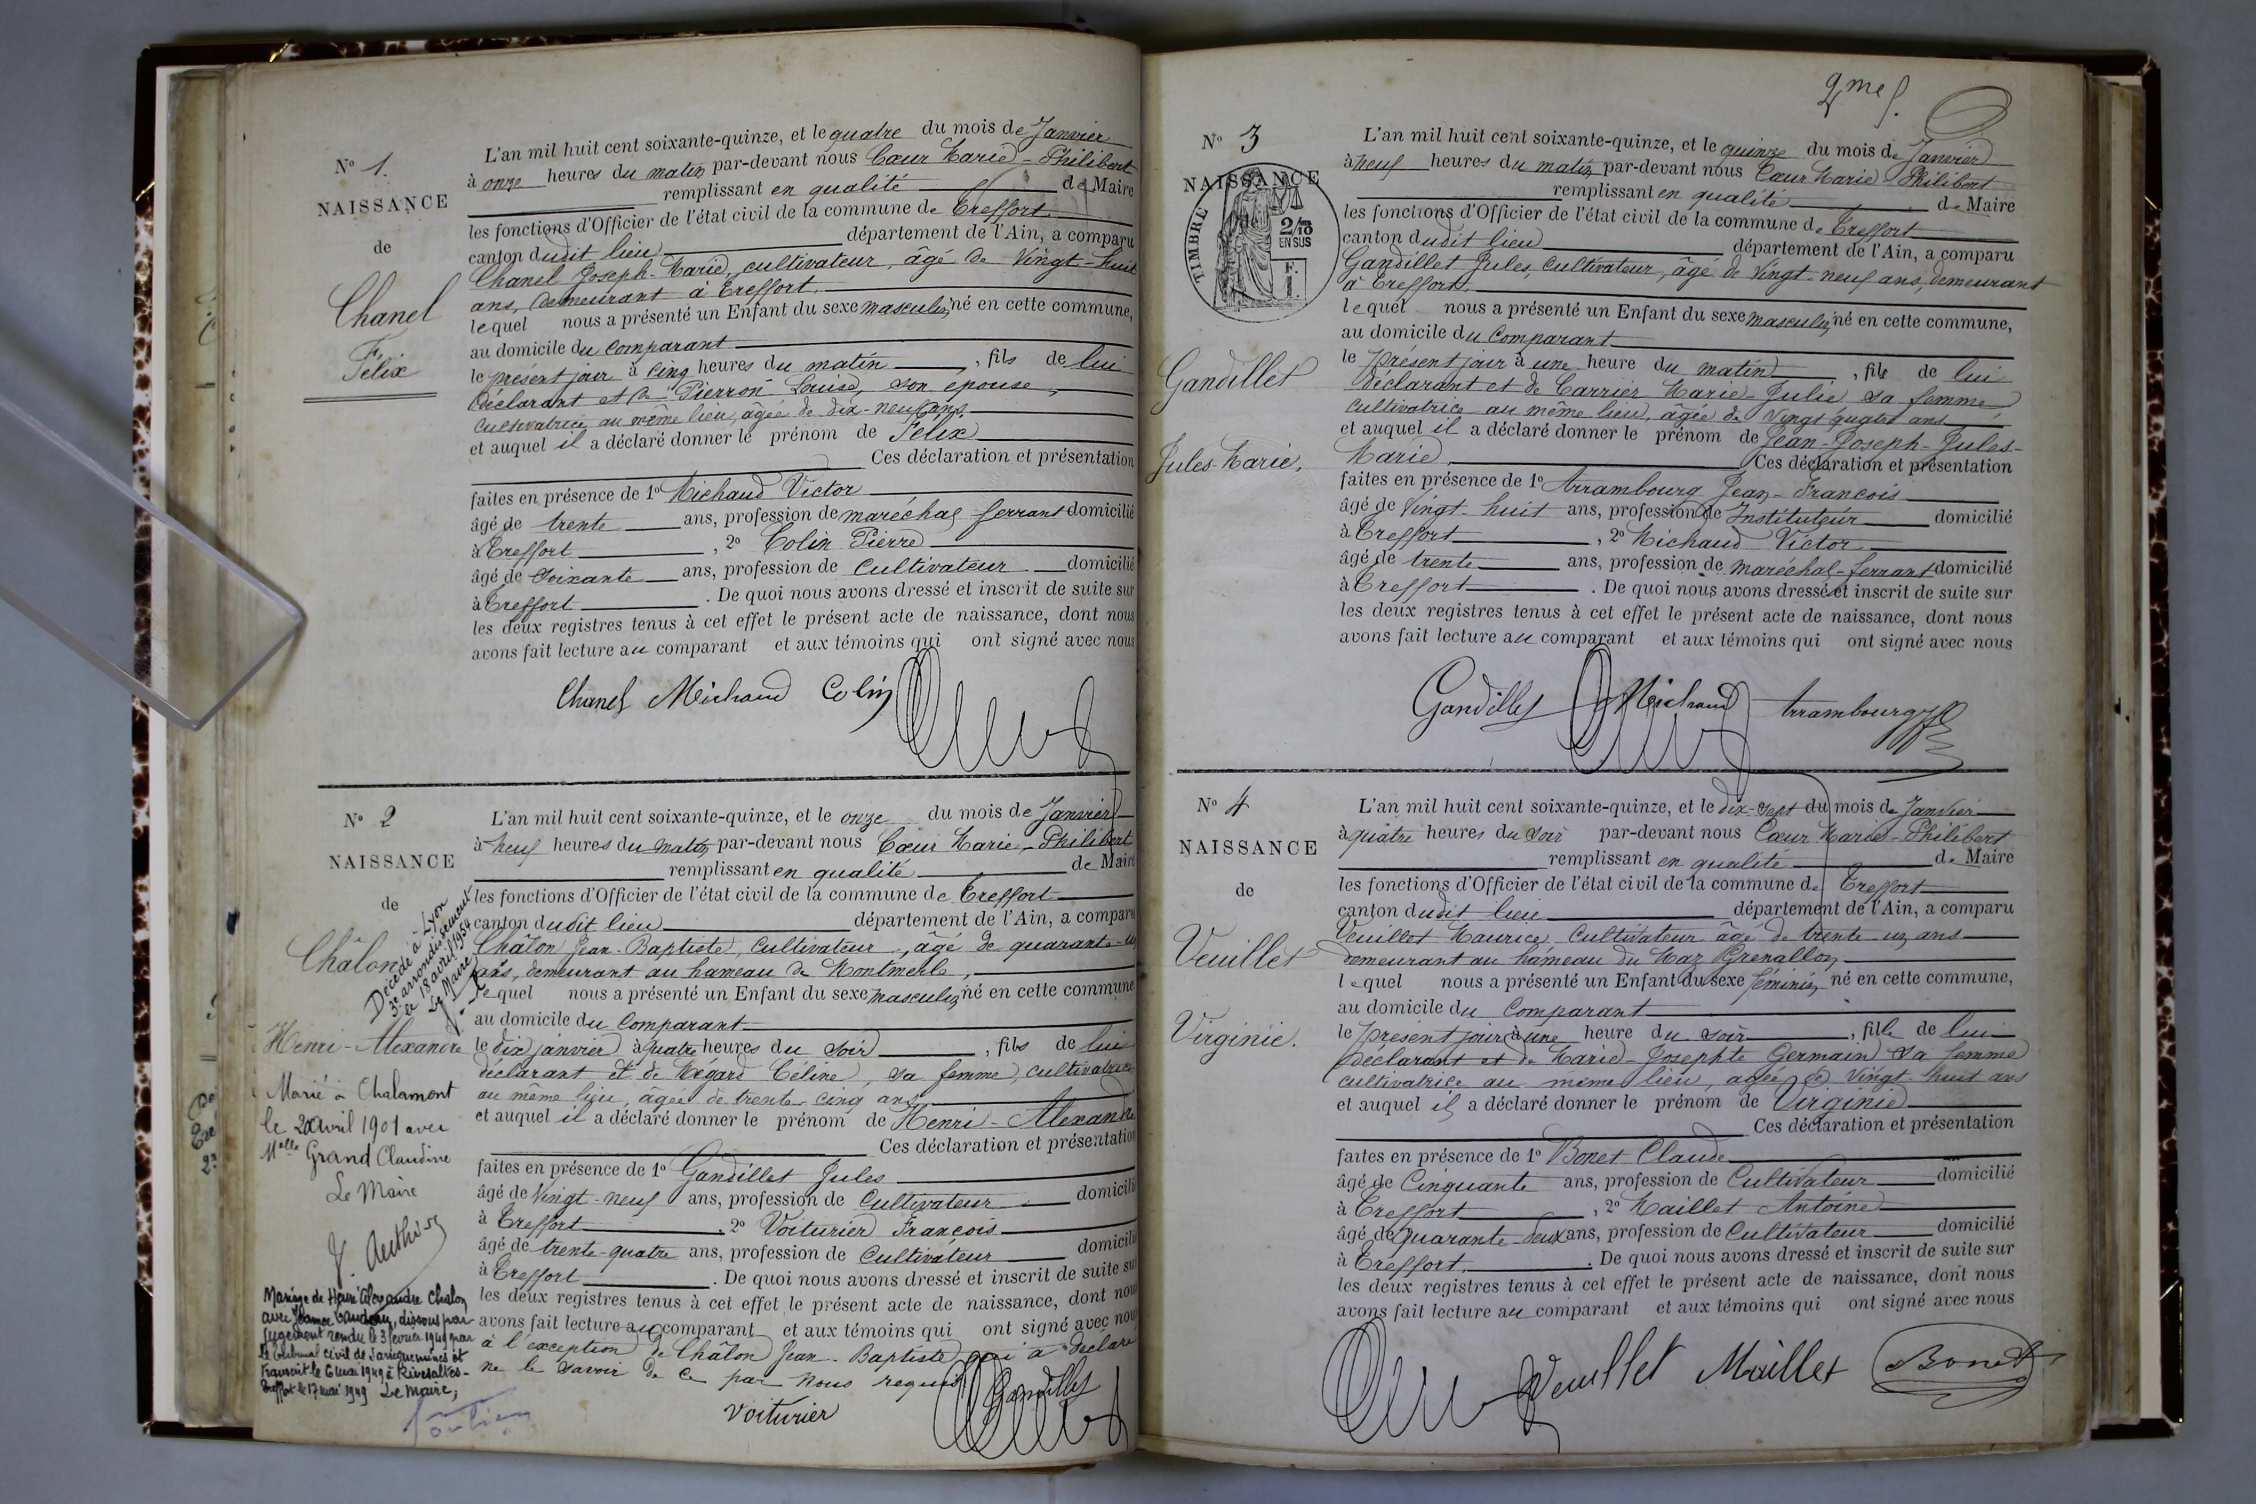 N° 1.
NAISSANCE
de
Chanel
Félix
L'an mil huit cent soixante-quinze, et le quatre du mois de Janvier
à onze heures du matin par-devant nous Cœur Marie-Philibert
remplissant en qualité de Maire
les fonctions d'Officier de l'état civil de la commune de Treffort
canton dudit lieu département de l'Ain, a comparu
Chanel Joseph-Marie, cultivateur, âgé de Vingt-huit
ans, demeurant à Treffort.
lequel nous a présenté un Enfant du sexe masculin, né en cette commune,
au domicile du comparant
le présent jour à cinq heures du matin, fils de lui
déclarant et de Pierron Louise, son épouse,
cultivatrice, au même lieu, âgée de dix-neuf ans
et auquel il a déclaré donner le prénom de Félix
Ces déclaration et présentation
faites en présence de 1° Michaud Victor
âgé de trente ans, profession de maréchal-ferrant domicilié
à Treffort, 2° Colin Pierre
âgé de soixante ans, profession de Cultivateur domicilié
à Treffort. De quoi nous avons dressé et inscrit de suite sur
les deux registres tenus à cet effet le présent acte de naissance, dont nous
avons fait lecture au comparant et aux témoins qui ont signé avec nous
Chanel Michaud Colin
N° 2
NAISSANCE
de
Châlon
Henri-Alexandre
Décédé à Lyon
3e arrondissement
le 18 avril 1954
Le Maire
Marié à Chalamont
le 20 Avril 1901 avec
Melle Grand Claudine
Le Maire
Mariage de Henri Alexandre Chalon
avec Jeanne, dissous par
jugement rendu le 3 février 1949 par
le tribunal civil de Sarreguemines et
transcrit le 6 mai 1949 à Rivesaltes-
Treffort le 17 mai 1949 Le Maire,
L'an mil huit cent soixante-quinze, et le onze du mois de Janvier
à neuf heures du matin, par-devant nous Cœur Marie-Philibert
remplissant en qualité de Maire
les fonctions d'Officier de l'état civil de la commune de Treffort
canton dudit lieu département de l'Ain, a comparu
Châlon Jean-Baptiste, cultivateur, âgé de quarante-un
ans, demeurant au hameau de Montmerle,
lequel nous a présenté un Enfant du sexe masculin, né en cette commune
au domicile du comparant
le dix janvier à quatre heures du soir, fils de lui
déclarant et de Mégard Céline, sa femme, cultivatrice
au même lieu, âgée de trente-cinq ans
et auquel il a déclaré donner le prénom de Henri-Alexandre
Ces déclaration et présentation
faites en présence de 1° Gandillet Jules
âgé de Vingt-neuf ans, profession de Cultivateur domicilié
à Treffort, 2° Voiturier François
âgé de trente-quatre ans, profession de Cultivateur domicilié
à Treffort. De quoi nous avons dressé et inscrit de suite sur
les deux registres tenus à cet effet le présent acte de naissance, dont nous
avons fait lecture au comparant et aux témoins qui ont signé avec nous
à l'exception de Châlon Jean-Baptiste qui a déclaré
ne le savoir de ce par nous requis
Gandillet
Voiturier
2me f.
N° 3
NAISSANCE
TIMBRE
2/10
EN SUS
F.
1.
Gandillet
Jules-Marie.
L'an mil huit cent soixante-quinze, et le quinze du mois de Janvier
à neuf heures du matin par-devant nous Cœur Marie-Philibert
remplissant en qualité de Maire
les fonctions d'Officier de l'état civil de la commune de Treffort
canton dudit lieu département de l'Ain, a comparu
Gandillet Jules, Cultivateur, âgé de Vingt-neuf ans, demeurant
à Treffort.
lequel nous a présenté un Enfant du sexe masculin, né en cette commune,
au domicile du comparant
le présent jour à une heure du matin, fils de lui
déclarant et de Carrier Marie-Julie sa femme
cultivatrice au même lieu, âgée de Vingt quatre ans
et auquel il a déclaré donner le prénom de Jean-Joseph-Jules-
Marie. Ces déclaration et présentation
faites en présence de 1° Arrambourg Jean-François
âgé de Vingt-huit ans, profession de Instituteur domicilié
à Treffort, 2° Michaud Victor
âgé de trente ans, profession de maréchal-ferrant domicilié
à Treffort. De quoi nous avons dressé et inscrit de suite sur
les deux registres tenus à cet effet le présent acte de naissance, dont nous
avons fait lecture au comparant et aux témoins qui ont signé avec nous
Gandillet Michaud Arrambourg
N° 4
NAISSANCE
de
Veuillet
Virginie.
L'an mil huit cent soixante-quinze, et le dix-sept du mois de Janvier
à quatre heures du soir par-devant nous Cœur Marie-Philibert
remplissant en qualité de Maire
les fonctions d'Officier de l'état civil de la commune de Treffort
canton dudit lieu département de l'Ain, a comparu
Veuillet Maurice, Cultivateur âgé de trente-un ans
demeurant au hameau du Maz Grenallon
lequel nous a présenté un Enfant du sexe féminin, né en cette commune,
au domicile du comparant
le présent jour à une heure du soir, fille de lui
déclarant et de Marie-Josephte Germain sa femme
cultivatrice au même lieu, âgée de Vingt-huit ans
et auquel il a déclaré donner le prénom de Virginie
Ces déclaration et présentation
faites en présence de 1° Bonet Claude
âgé de Cinquante ans, profession de Cultivateur domicilié
à Treffort, 2° Maillet Antoine
âgé de quarante-deux ans, profession de Cultivateur domicilié
à Treffort. De quoi nous avons dressé et inscrit de suite sur
les deux registres tenus à cet effet le présent acte de naissance, dont nous
avons fait lecture au comparant et aux témoins qui ont signé avec nous
Veuillet Maillet Bonet